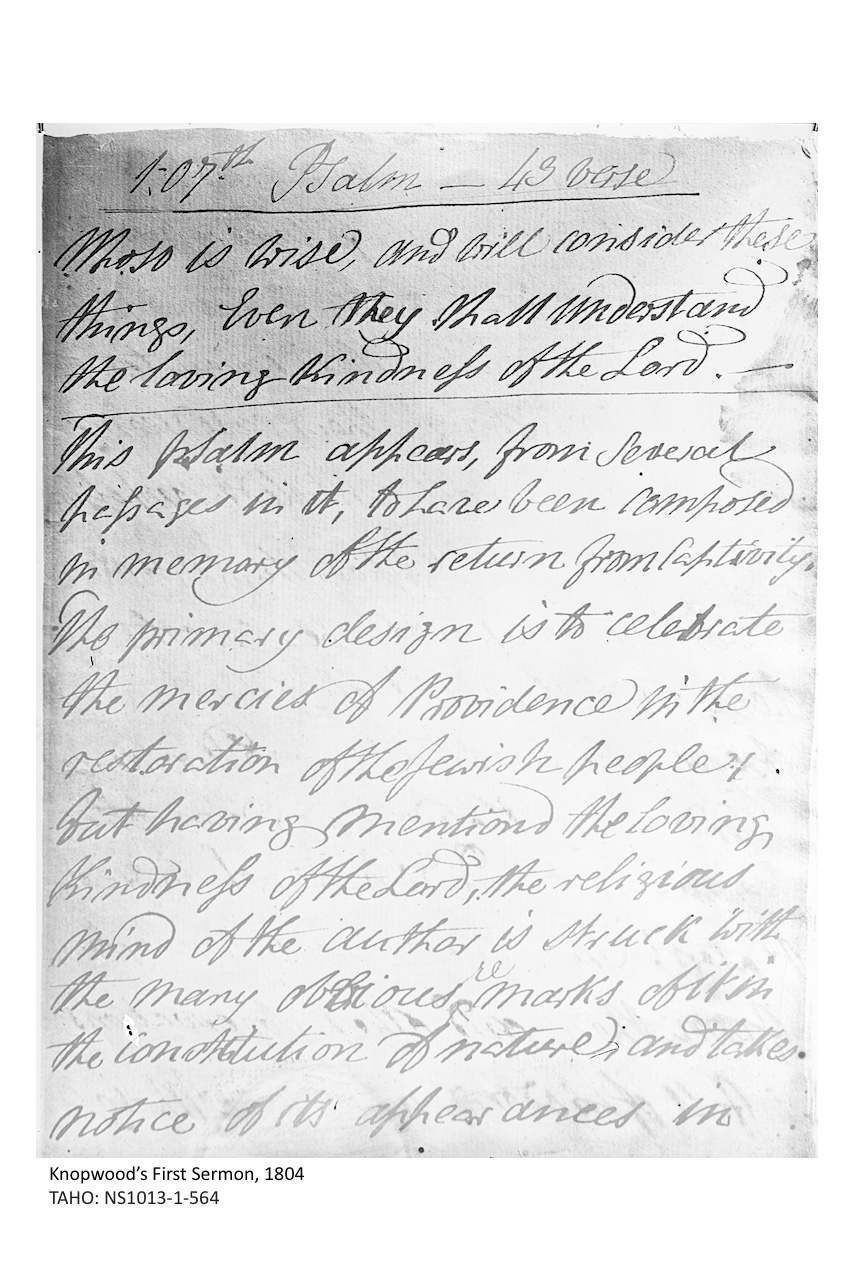 1:07th Psalm — 43 verse
Whoso is wise, and will consider these
things, Even they shall understand
the loving Kindneſs of the Lord. —
This psalm appears, from several
paſsages in it, to have been composed
in memory of the return from Captivity.
The primary design is to celebrate
the mercies of Providence in the
restoration of the Jewish people;
but having mentiond the loving
Kindneſs of the Lord, the religious
mind of the author is struck with
re
the many obvious marks of it in
the constitution of nature; and takes
notice of its appearances in
Knopwood's First Sermon, 1804
TAHO: NS1013-1-564